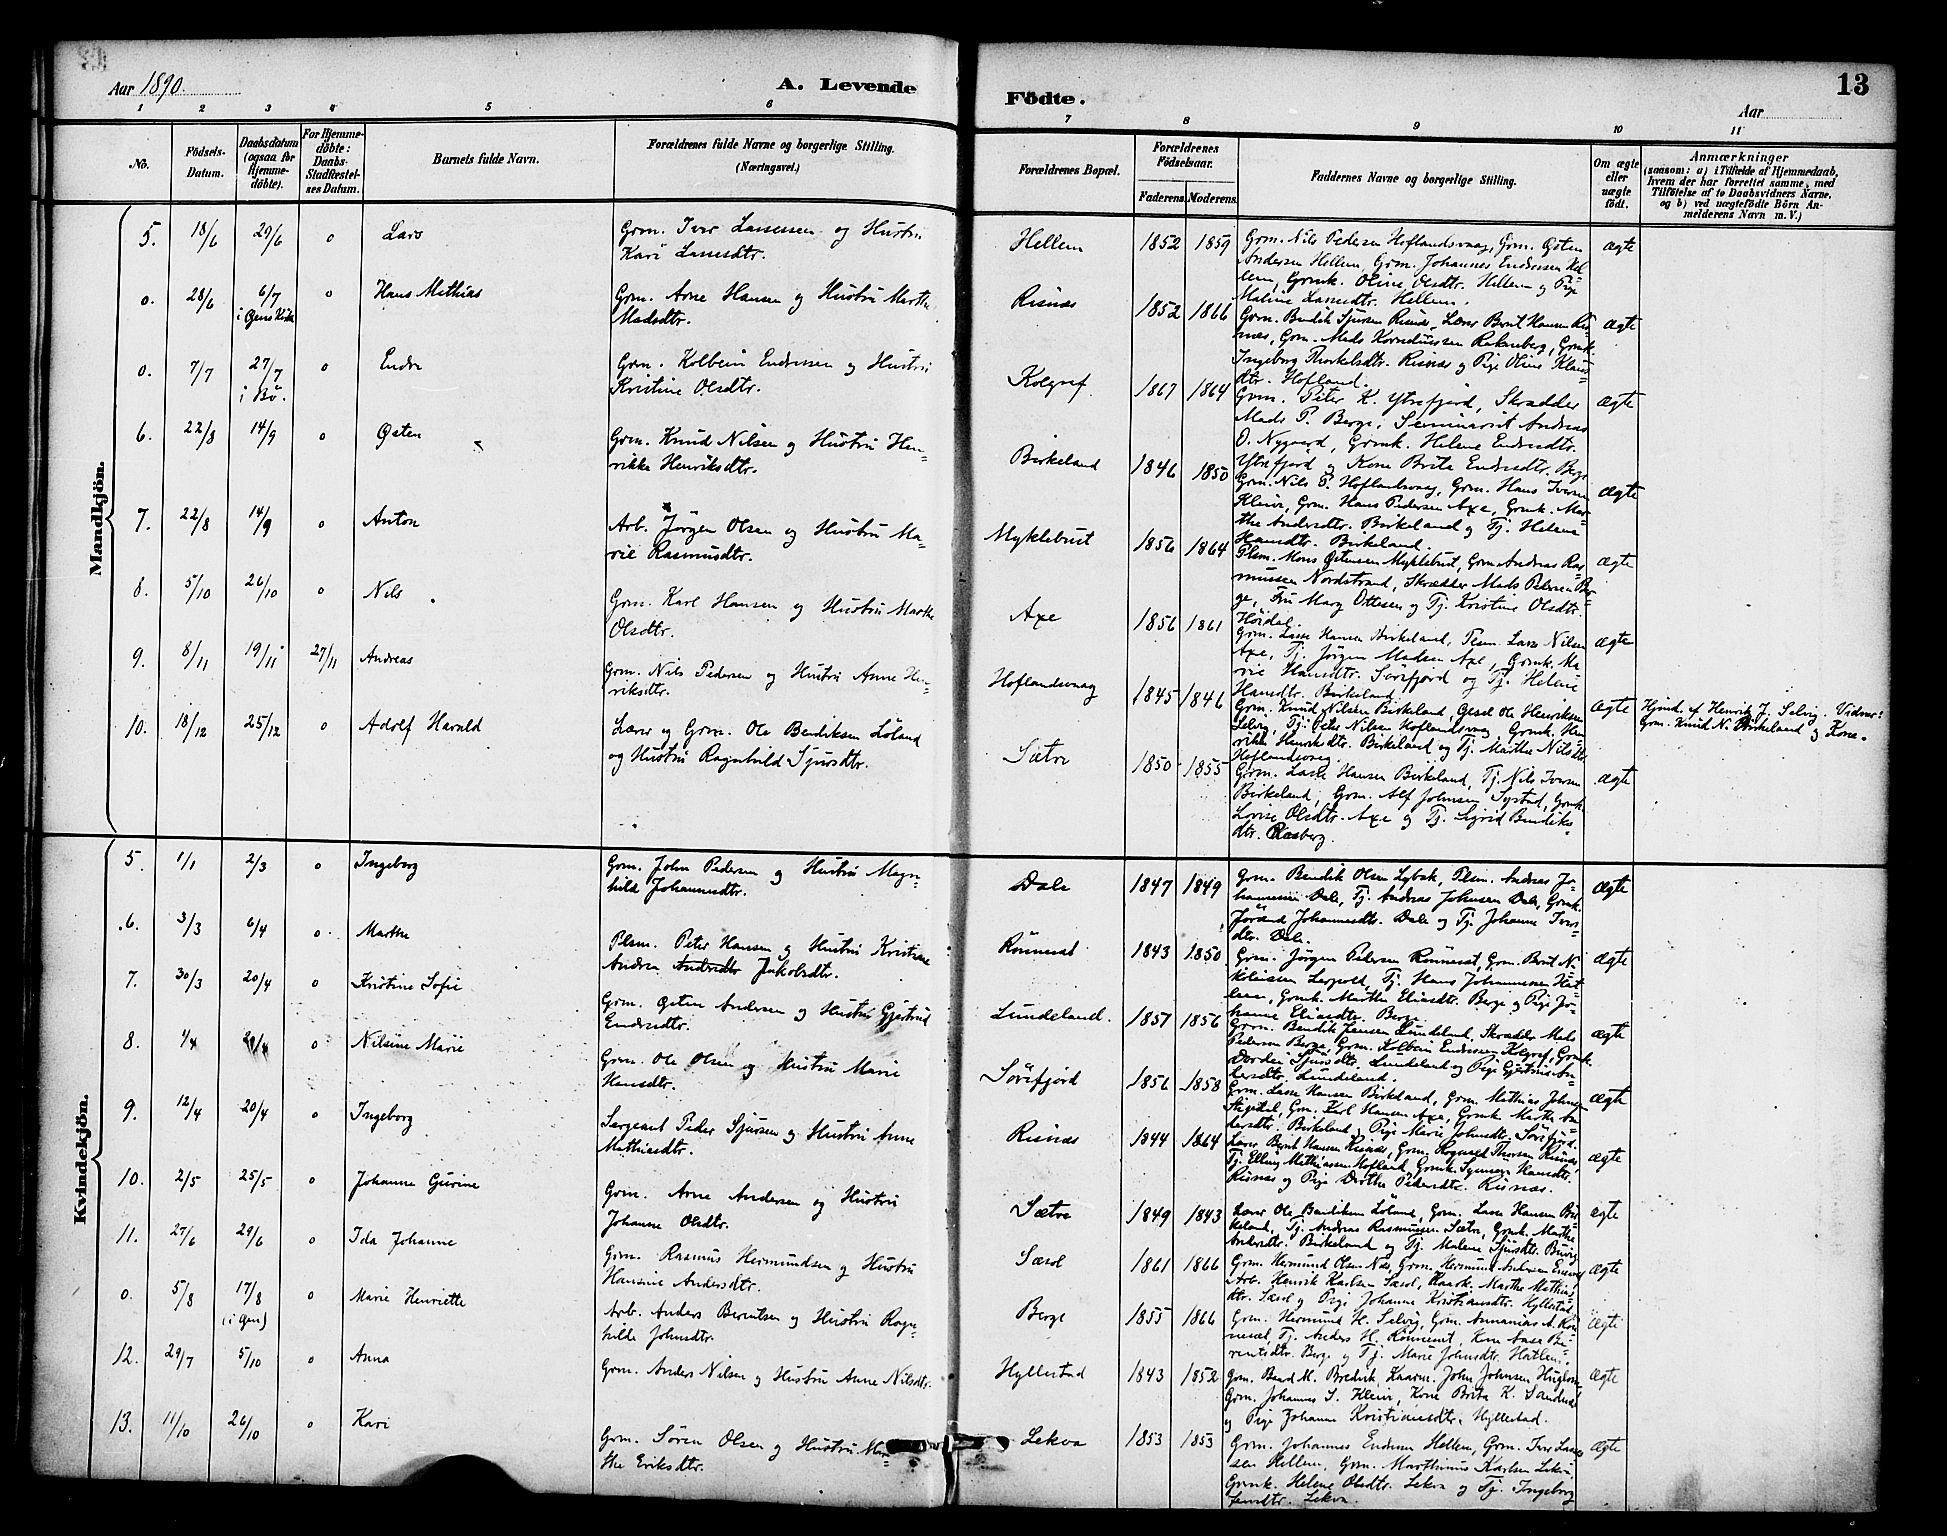 Aar 1890.
A. Levende
Födte.
13
Aar
1 2 3 4 5 6 7 8 9 10 11
No.
Födsels-
Datum.
Daabsdatum
(ogsaa for
Hjemme-
döbte).
For Hjemme-
döbte:
Daabs-
Stadfæstel-
ses Datum.
Barnets fulde Navn.
Forældrenes fulde Navne og borgerlige Stilling.
(Næringsvei.)
Forældrenes Bopæl.
Forældrenes
Födselsaar.
Faderens. Moderens.
Faddernes Navne og borgerlige Stilling.
Om ægte
eller
uægte
födt.
Anmærkninger
(saasom: a) i Tilfælde af Hjemmedaab,
hvem der har forrettet samme, med
Tilföielse af to Daabsvidners Navne.
og b) ved uægtefödte Börn An-
melderens Navn m. V.)
Mandkjön.
5. 18/6 29/6 o Lars
Grm. Iver Lassesen og Hustru
Kari Lassesdtr.
Hellem 1852 1859
Grm. Nils Pedersen Hoflandsvaag, Grm. Østen
Andersen Hellem, Grm. Johannes Endresen Hel-
lem, Grmk. Oline Olsdtr. Hellem og Pige
Maline Lassedtr. Hellem.
Ægte
o. 28/6 6/7 o Hans Mathias
i Øens Kirke
Grm. Arne Hansen og Hustru Marthe
Madsdtr.
Risnæs 1852 1866
Grm. Bendik Sjursen Risnæs, Lærer Brnt Hansen Ris-
næs, Grm. Mads Korneliussen, Grmk.
Ingeborg Thorkelsdtr. Risnæs og Pige Oline Klaus-
dtr. Hofland.
Ægte
o. 7/7 27/7 o Endre
i Bø.
Grm. Kolbein Endresen og Hustru
Kristine Olsdtr.
Kolgrof 1867 1864
Grm. Peter K. Ytrefjord, Skrædder
Mads P. Berge, Seminarist Andreas
O. Nygaard, Grmk. Helene Endresdtr.
Ytrefjord og Kone Brita Endresdtr. Berge
Ægte
6. 22/8 14/9 o Østen
Grm. Knud Nilsen og Hustru Hen-
rikke Henriksdtr.
Birkeland 1846 1850
Grm. Nils P. Hoflandsvaag, Grm. Hans Iversen
Kleiva, Grm. Hans Pedersen Axe, Grmk. Mar-
the Andersdtr. Birkeland og Tj. Helene
Hansdtr. Birkeland.
Ægte
7. 22/8 14/9 o Anton
Arb. Jörgen Olsen og Hustru Ma-
rie Rasmusdtr.
Myklebust 1856 1864
Plsm. Mons Østensen Myklebust, Grm Andreas Ras-
mussen Nordstrand, Skrædder Mads Petersen Ber-
ge, Fru Mary Ottesen og Tj. Kristine Olsdtr.
Höidal.
Ægte
8. 5/10 26/10 o Nils
Grm. Karl Hansen og Hustru Marthe
Olsdtr.
Axe 1856 1861
Grm. Lasse Hansen Birkeland, Plsm. Lars Nilsen
Axe, Tj. Jörgen Madsen Axe, Grmk. Ma-
rie Hansdtr. Sörefjord og Tj. Helene
Hansdtr. Birkeland
Ægte
9. 8/11 19/11 27/11 Andreas
Grm. Nils Pedersen og Hustru Anne Hen-
riksdtr.
Hoflandsvaag 1845 1846
Grm. Knud Nilsen Birkeland, Gesel Ole Henriksen
Selvig, Tj. Peter Nilsen Hoflandsvaag, Grmk. Hen-
rikke Henriksdtr. Birkeland og Tj. Marthe Nilsdtr.
Hoflandsvaag.
Ægte
Hjmd. af Henrik J. Selvig. Vidner:
Grm. Knud N. Birkeland og Kone.
10. 18/12 25/12 o Adolf Harald
Lærer og Grm. Ole Bendiksen Löland
og Hustru Ragnhild Sjursdtr.
Sætre 1850 1855
Grm. Lasse Hansen Birkeland, Tj. Nils Iversen
Birkeland, Grm. Alf Johnsen Systad, Grmk.
Lovise Olsdtr. Axe og Tj. Sigrid Bendiks-
dtr.
Ægte
Kvindekjön.
5. 1/1 2/3 o Ingeborg
Grm. John Pedersen og Hustru Magn-
hild Johannesdtr.
Dale 1847 1849
Grm. Bendik Olsen, Plsm. Andreas Jo-
hannesen Dale, Tj. Andreas Johnsen Dale, Grmk.
Jörand Johannesdtr. Dale og Tj. Johanne Iver-
dtr. Dale.
Ægte
6. 3/3 6/4 o Marthe
Plsm. Peter Hansen og Hustru Kristiane
Andrea Andredtr Jakobsdtr.
Rönneset 1843 1850
Grm. Jörgen Petersen Rönneset, Grm. Brnt N-
kolaisen, Tj. Hans Johannessen Hat-
lem, Grmk. Marthe Eliasdtr. Berge og Pige Jo-
hanne Eliasdtr. Berge
Ægte
7. 30/3 20/4 o Kristine Sofie
Grm. Østen Andersen og Hustru Gjertrud
Endresdtr.
Lundeland. 1857 1856
Grm. Bendik Jensen Lundeland, Skrædder Mads
Pederson Berge, Grm. Kolbein Endresen Kolgrof, Grmk.
Dordei Sjursdtr. Lundeland og Pige Gjertrud An-
dersdtr. Lundeland.
Ægte
8. 7/4 20/4 o Nilsine Marie
Grm. Ole Olsen og Hustru Marie
Hansdtr.
Sörefjord 1856 1858
Grm. Lasse Hansen Birkeland, Grm. Mathias Johnsen
Stigedal, Grm. Karl Hansen Axe, Grmk. Marthe An-
dersdtr. Birkeland, Pige Marie Johnsdtr. Sörefjord.
Ægte
9. 12/4 20/4 o Ingeborg
Sergeant Peder Sjursen og Hustru Anne
Mathiasdtr.
Risnæs 1844 1864
Lærer Bernt Hansen Risnæs, Grm. Rognald Thorsen Risnæs,
Tj. Elling Mathiassen Hofland, Grmk. Synneve Hansdtr.
Risnæs og Pige Dorthe Pedersdtr. Risnæs.
Ægte
10. 2/5 25/5 o Johanne Gurine
Grm. Arne Andersen og Hustru
Johanne Olsdtr.
Sætre 1849 1843
Lærer Ole Bendiksen Löland, Grm. Lasse Hansen Bir-
keland, Tj. Andreas Rasmussen Sætre, Grmk. Marthe
Andersdtr. Birkeland og Tj. Malene Sjursdtr.
Ægte
11. 27/6 29/6 o Ida Johanne
Grm. Rasmus Hermundsen og Hustru
Hansine Andersdtr.
Sæsol 1861 1866
Grm. Hermund Olsen Næs, Grm. Hermund Andersen,
Arb. Henrik Karlsen Sæsol, Kaark. Marthe Mathias-
dtr. Sæsol og Pige Johanne Kristiansdtr. Hyllestad.
Ægte
o. 5/8 17/8 o Marie Henriette
(i Øen)
Arb. Anders Berentsen og Hustru Ragn-
hilde Johnsdtr.
Berge 1855 1866
Grm. Hermund H. Selvig, Grm. Annanias A. Rön-
neset, Tj. Anders H. Rönneset, Kone Aase Be-
rentsdtr. Berge og Tj. Marie Johnsdtr. Hatlem.
Ægte
12. 29/7 5/10 o Anna
Grm. Anders Nilsen og Hustru Anne Nilsdtr.
Hyllestad 1843 1852
Grm. Bernt M. Bredvik, Kaarm. John Johnsen,
Grm. Johannes S. Kleiva, Kone Brita K. Sandnæs
og Pige Johanne Kristiansdtr. Hyllestad.
Ægte
13. 11/10 26/10 o Kari
Grm. Sören Olsen og Hustru Mar-
the Eriksdtr.
Lekva 1853 1853
Grm. Johannes Endresen Hellem, Grm. Iver Lasse-
sen Hellem, Grm. Marthinus Karlsen Lekva,
Grmk. Helene Olsdtr. Lekva og Tj. Ingeborg
Jensdtr. Lekva.
Ægte